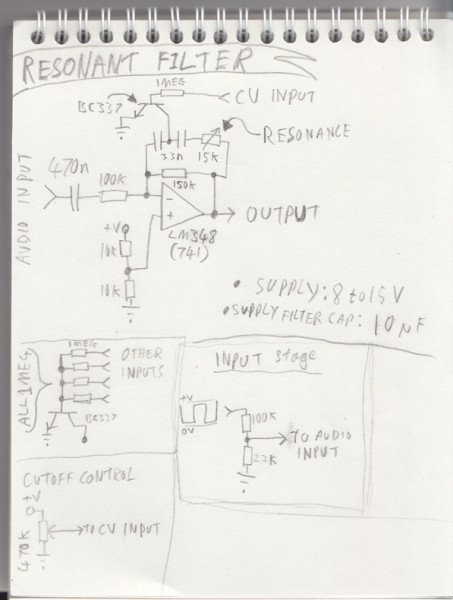 RESONANT FILTER
1MEG
CV INPUT
BC337
RESONANCE
33n
15K
470n
100K
150K
AUDIO INPUT
-
+
OUTPUT
LM348
(741)
+V
10K
10K
• SUPPLY: 8 to 15 V
• SUPPLY FILTER CAP: 10µF
1MEG
OTHER
INPUTS
ALL 1MEG
BC337
INPUT stage
+V
0V
100K
TO AUDIO
INPUT
22K
CUTOFF CONTROL
+V
470K
TO CV INPUT